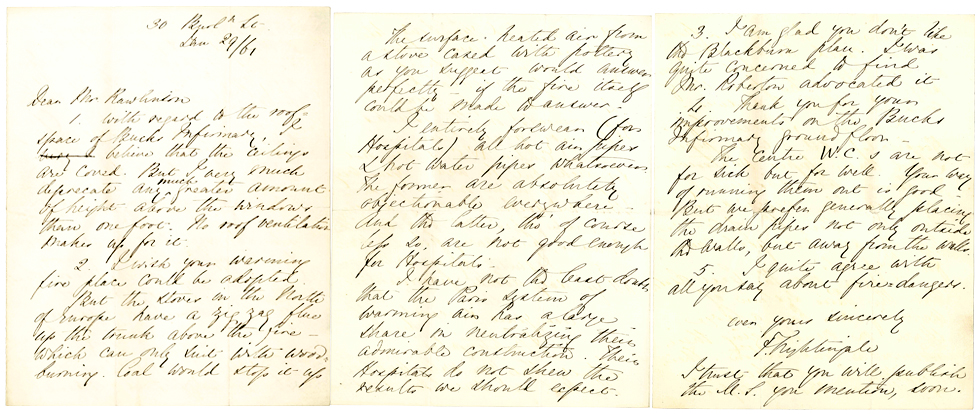 30 Burln St.
Jan 29/61
Dear Mr Rawlinson
1. With regard to the roof
space of Bucks Infirmary,
I believe that the ceilings
are coved. But I very much
deprecate any much greater amount
of height above the windows
than one foot. No roof ventilation
makes up for it.
2. I wish your warming
fire place could be adopted.
But the stoves in the North
of Europe have a zig zag flue
up the trunk above the fire –
which can only suit with wood-
burning. Coal would stop it up
The surface-heated air from
a stove cased with pottery
as you suggest would answer
perfectly – if the fire itself
could be made to answer.
I entirely forswear (for
Hospitals) all hot air pipes
& hot water pipes whatsoever
The former are absolutely
objectionable everywhere –
And the latter, tho' of course
less so, are not good enough
for Hospitals.
I have not the least doubt
that the Paris system of
warming air has a large
share in neutralizing their
admirable construction. Their
Hospitals do not shew the
results we should expect.
3. I am glad you don't like
the Blackburn plan. I was
quite concerned to find
Mr. Roberton advocated it
4. Thank you for your
improvements on the Bucks
Infirmary ground floor –
The centre W.C.s are not
for sick but for well. Your way
of running them out is good
But we prefer generally placing
the drain pipes not only outside
the walls, but away from the walls.
5. I quite agree with
all you say about fire-dangers.
ever yours sincerely
F. Nightingale
I trust that you will publish
the M.S. you mention, soon.